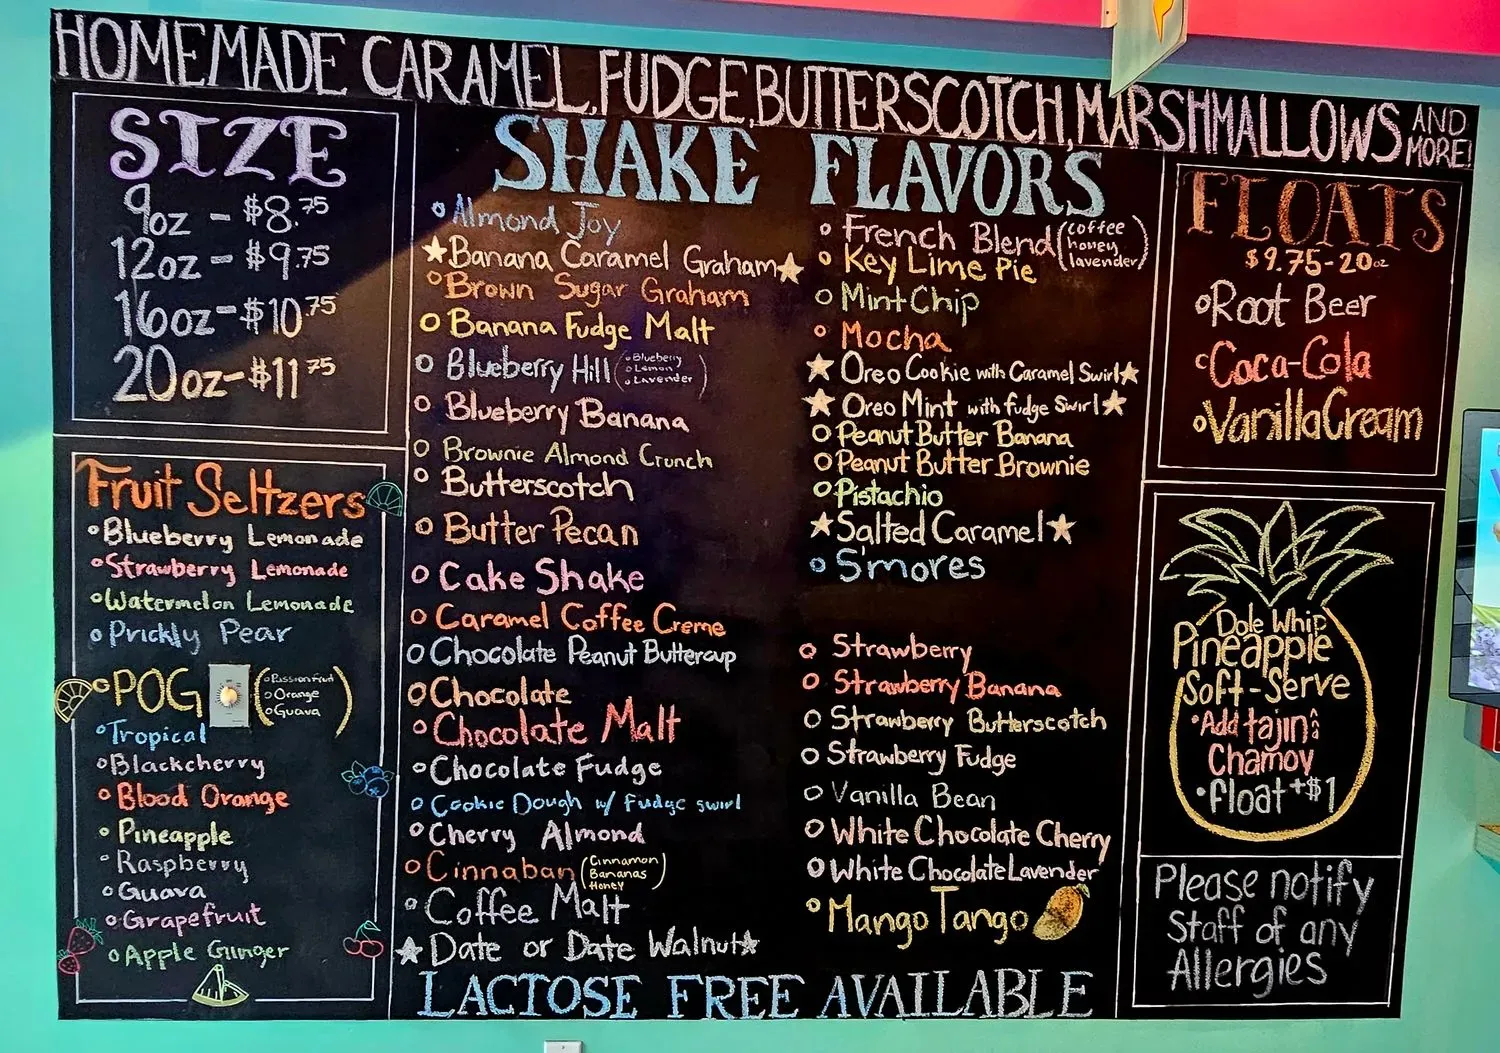 HOMEMADE CARAMEL, FUDGE, BUTTERSCOTCH, MARSHMALLOWS AND MORE!
SIZE
9oz - $8.75
12oz - $9.75
16oz - $10.75
20oz - $11.75
Fruit Seltzers
Blueberry Lemonade
Strawberry Lemonade
Watermelon Lemonade
Prickly Pear
POG (Passionfruit
Orange
Guava)
Tropical
Blackcherry
Blood Orange
Pineapple
Raspberry
Guava
Grapefruit
Apple Ginger
SHAKE FLAVORS
Almond Joy
Banana Caramel Graham
Brown Sugar Graham
Banana Fudge Malt
Blueberry Hill (Blueberry
Lemon
Lavender)
Blueberry Banana
Brownie Almond Crunch
Butterscotch
Butter Pecan
Cake Shake
Caramel Coffee Creme
Chocolate Peanut Buttercup
Chocolate
Chocolate Malt
Chocolate Fudge
Cookie Dough w/ fudge swirl
Cherry Almond
Cinnaban (Cinnamon
Bananas
Honey)
Coffee Malt
Date or Date Walnut
French Blend (coffee
honey
lavender)
Key Lime Pie
Mint Chip
Mocha
Oreo Cookie with Caramel Swirl
Oreo Mint with fudge Swirl
Peanut Butter Banana
Peanut Butter Brownie
Pistachio
Salted Caramel
S'mores
Strawberry
Strawberry Banana
Strawberry Butterscotch
Strawberry Fudge
Vanilla Bean
White Chocolate Cherry
White Chocolate Lavender
Mango Tango
LACTOSE FREE AVAILABLE
FLOATS
$9.75-20oz
Root Beer
Coca-Cola
Vanilla Cream
Dole Whip
Pineapple
Soft-Serve
Add tajin
Chamoy
float +$1
Please notify
Staff of any
Allergies